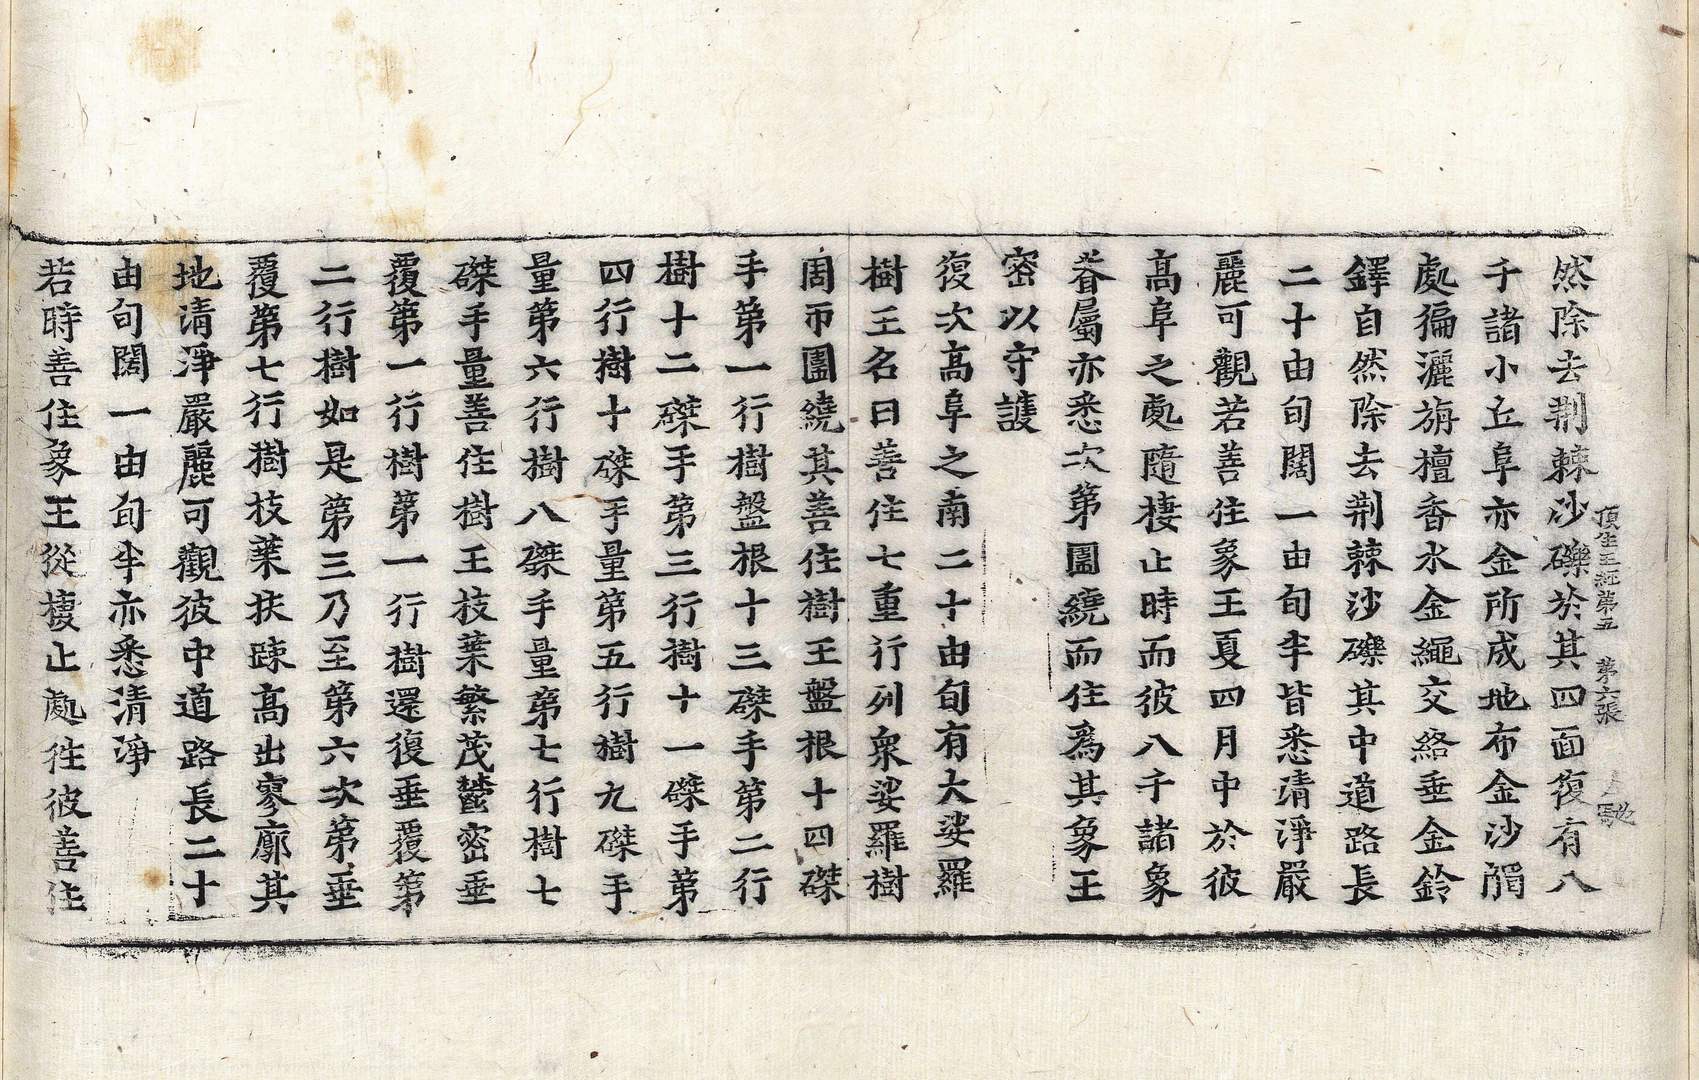 然除去荆棘沙礫於其四面復有八
千諸小丘阜亦金所成地布金沙觸
處徧灑旃檀香水金繩交絡垂金鈴
鐸自然除去荆棘沙礫其中道路長
二十由旬闊一由旬半皆悉清淨嚴
麗可觀若善住象王夏四月中於彼
高阜之處隨棲止時而彼八千諸象
眷屬亦悉次第圍繞而住爲其象王
密以守護
復次高阜之南二十由旬有大娑羅
樹王名曰善住七重行列衆娑羅樹
周帀圍繞其善住樹王盤根十四磔
手第一行樹盤根十三磔手第二行
樹十二磔手第三行樹十一磔手第
四行樹十磔手量第五行樹九磔手
量第六行樹八磔手量第七行樹七
磔手量善住樹王枝葉繁茂鬱密垂
覆第一行樹第一行樹還復垂覆第
二行樹如是第三乃至第六次第垂
覆第七行樹枝葉扶踈高出寥廓其
地清淨嚴麗可觀彼中道路長二十
由旬闊一由旬半亦悉清淨
若時善住象王從棲止處往彼善住
頂生王經第五 第六張